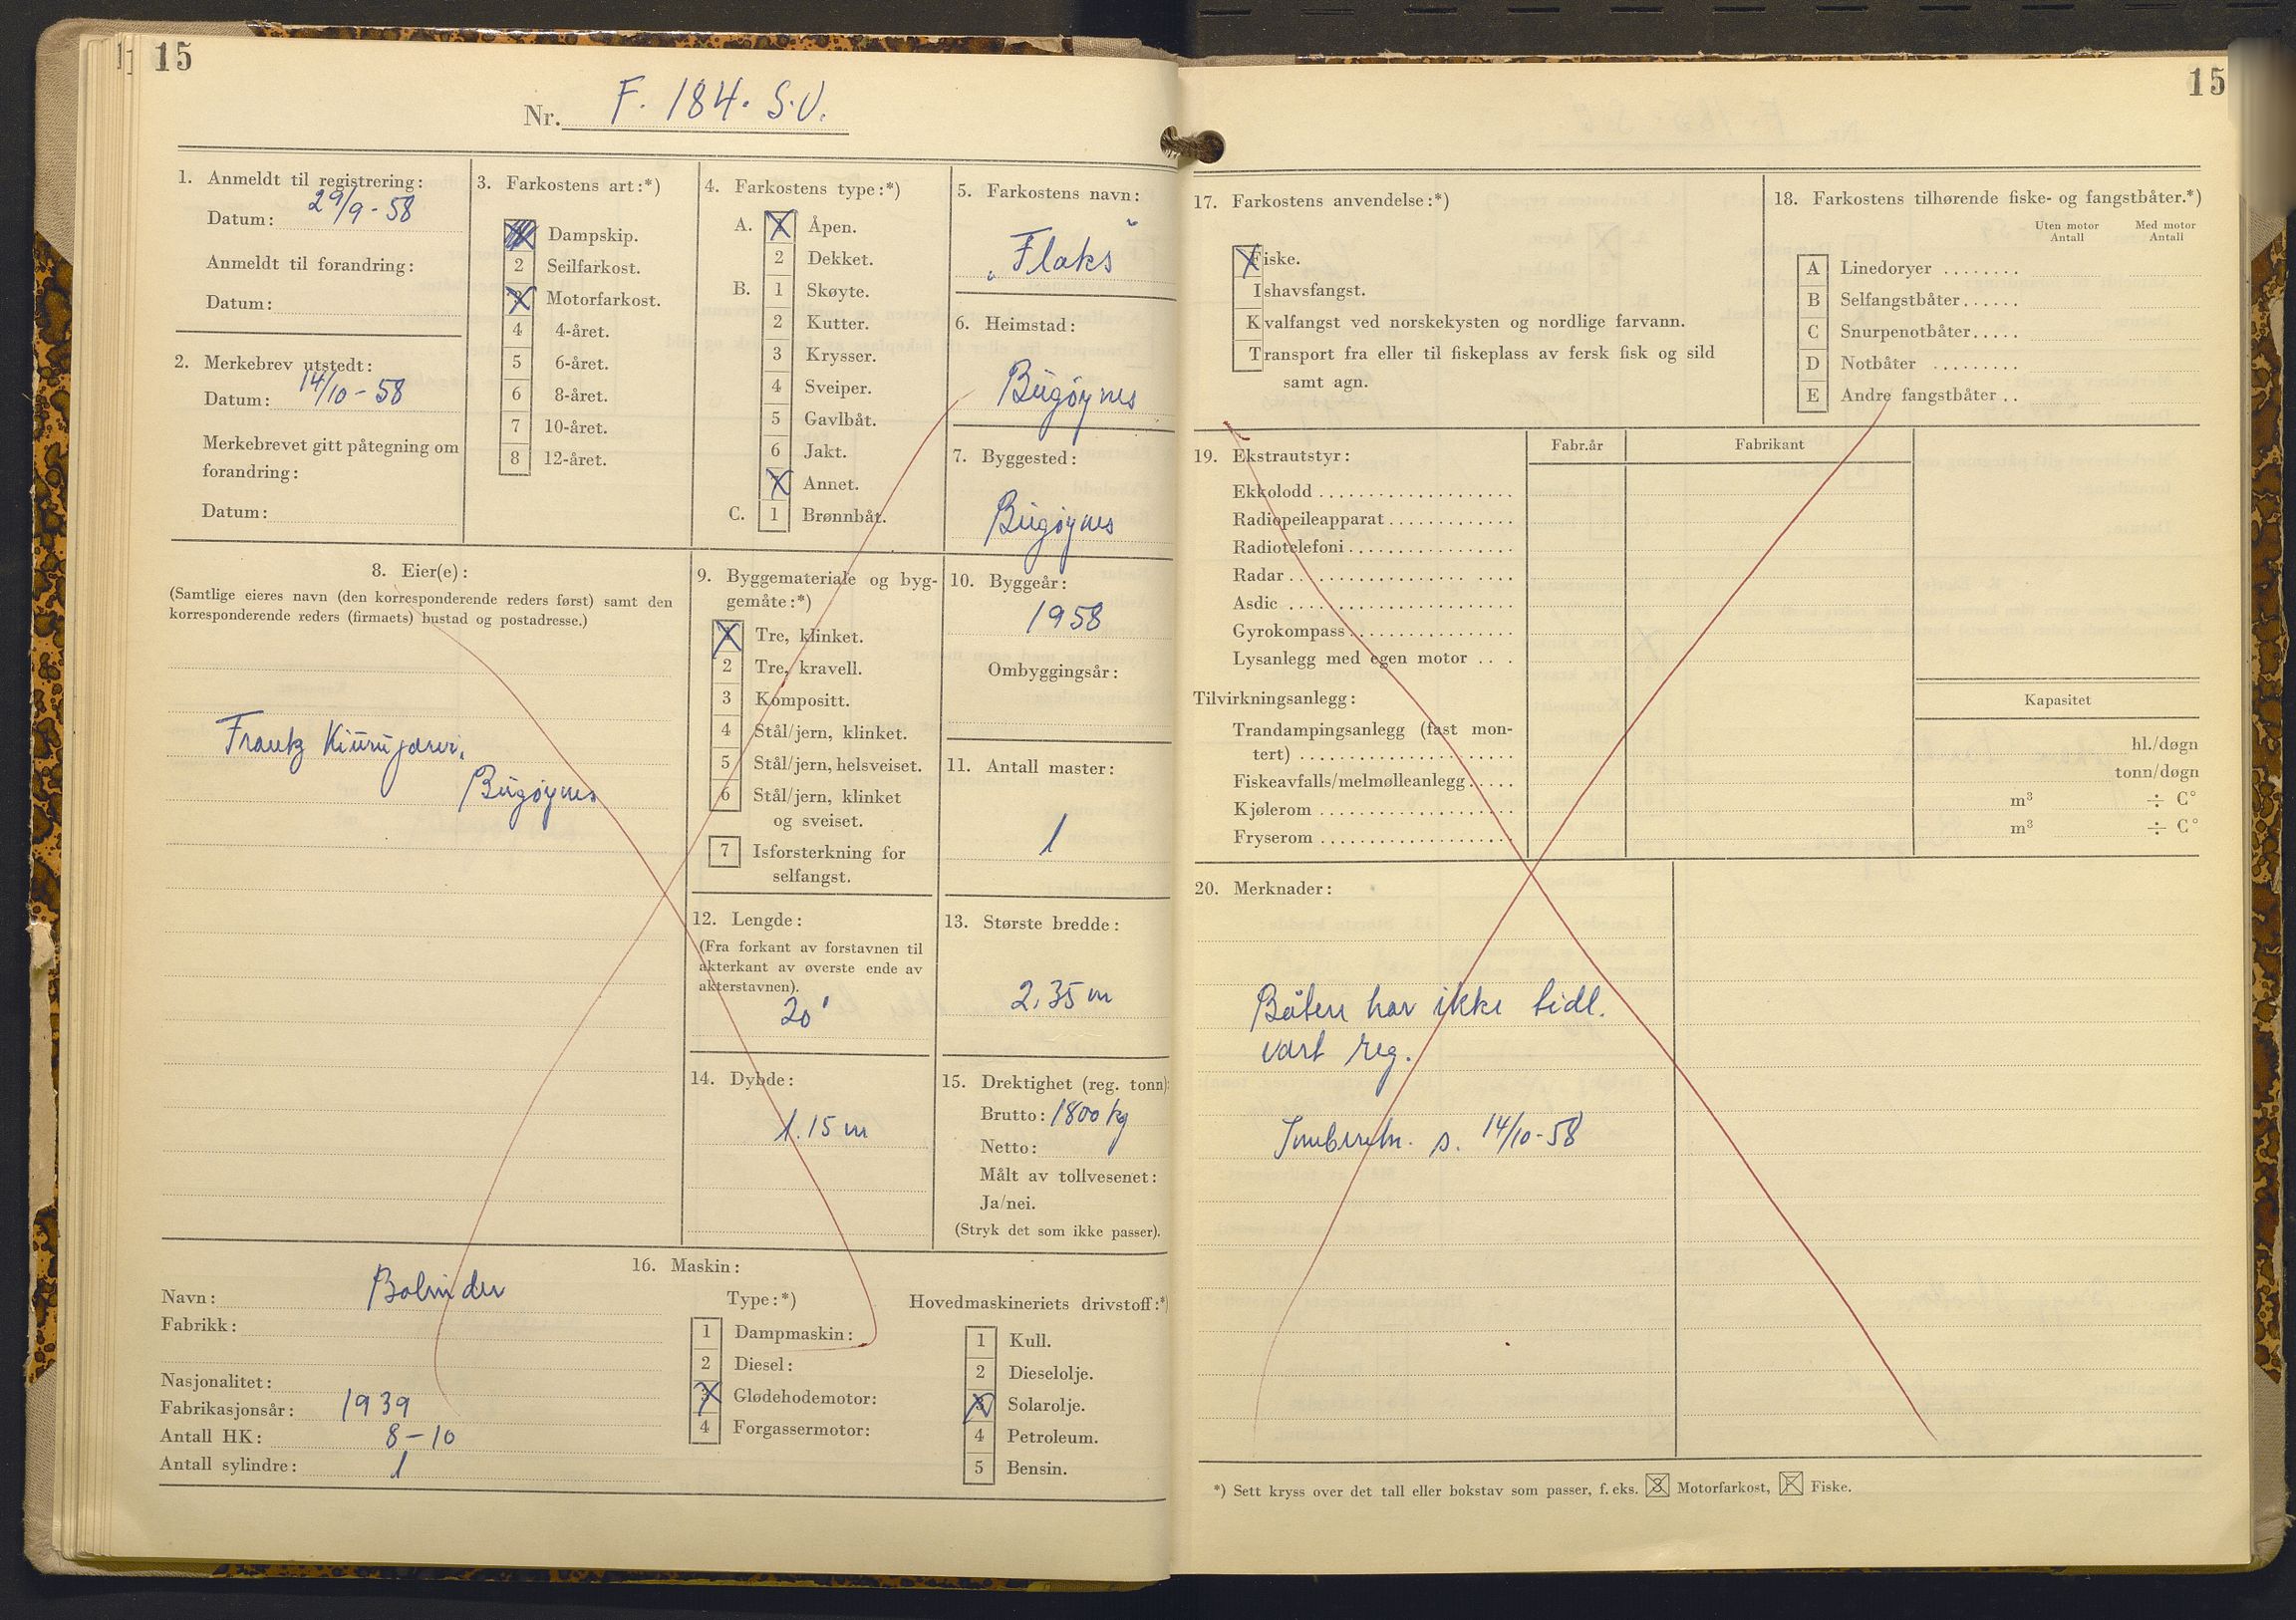 15
Nr. F. 184. S.V.
1. Anmeldt til registrering:
Datum: 29/9-58
Anmeldt til forandring:
Datum:
2. Merkebrev utstedt:
Datum: 14/10-58
Merkebrevet gitt påtegning om
forandring:
Datum:
3. Farkostens art:*)
Dampskip.
2 Seilfarkost.
3 Motorfarkost.
4 4-året.
5 6-året.
6 8-året.
7 10-året.
8 12-året.
4. Farkostens type:*)
A. 1 Åpen.
2 Dekket.
B. 1 Skøyte.
2 Kutter.
3 Krysser.
4 Sveiper.
5 Gavlbåt.
6 Jakt.
7 Annet.
C. 1 Brønnbåt.
5. Farkostens navn:
„Flaks"
6. Heimstad:
Bugøynes
7. Byggested:
Bugøynes
8. Eier(e):
(Samtlige eieres navn (den korresponderende reders først) samt den
korresponderende reders (firmaets) bustad og postadresse.)
Frantz
Bugøynes
9. Byggemateriale og byg-
gemåte:*)
1 Tre, klinket.
2 Tre, kravell.
3 Kompositt.
4 Stål/jern, klinket.
5 Stål/jern, helsveiset.
6 Stål/jern, klinket
og sveiset.
7 Isforsterkning for
selfangst.
10. Byggeår:
1958
Ombyggingsår:
11. Antall master:
1
12. Lengde:
(Fra forkant av forstavnen til
akterkant av øverste ende av
akterstavnen).
20'
13. Største bredde:
2,35 m
14. Dybde:
1.15 m
15. Drektighet (reg. tonn):
Brutto: 1800 kg
Netto:
Målt av tollvesenet:
Ja/nei.
(Stryk det som ikke passer).
16. Maskin:
Navn: Bolinder
Fabrikk:
Nasjonalitet:
Fabrikasjonsår: 1939
Antall HK: 8-10
Antall sylindre: 1
Type:*)
1 Dampmaskin:
2 Diesel:
3 Glødehodemotor:
4 Forgassermotor:
Hovedmaskineriets drivstoff:*)
1 Kull.
2 Dieselolje.
3 Solarolje.
4 Petroleum.
5 Bensin.
15
17. Farkostens anvendelse:*)
Fiske.
Ishavsfangst.
Kvalfangst ved norskekysten og nordlige farvann.
Transport fra eller til fiskeplass av fersk fisk og sild
samt agn.
18. Farkostens tilhørende fiske- og fangstbåter.*)
Uten motor Med motor
Antall Antall
A Linedoryer ........
B Selfangstbåter......
C Snurpenotbåter.....
D Notbåter .........
E Andre fangstbåter ..
19. Ekstrautstyr: Fabr.år Fabrikant
Ekkolodd
Radiopeileapparat
Radiotelefoni
Radar
Asdic
Gyrokompass
Lysanlegg med egen motor
Tilvirkningsanlegg: Kapasitet
Trandampingsanlegg (fast mon-
tert) hl./døgn
Fiskeavfalls/melmølleanlegg tonn/døgn
Kjølerom m³ ÷ C°
Fryserom m³ ÷ C°
20. Merknader:
Båten har ikke tidl.
vært reg.
s. 14/10-58
*) Sett kryss over det tall eller bokstav som passer, f. eks. 3 Motorfarkost, F Fiske.